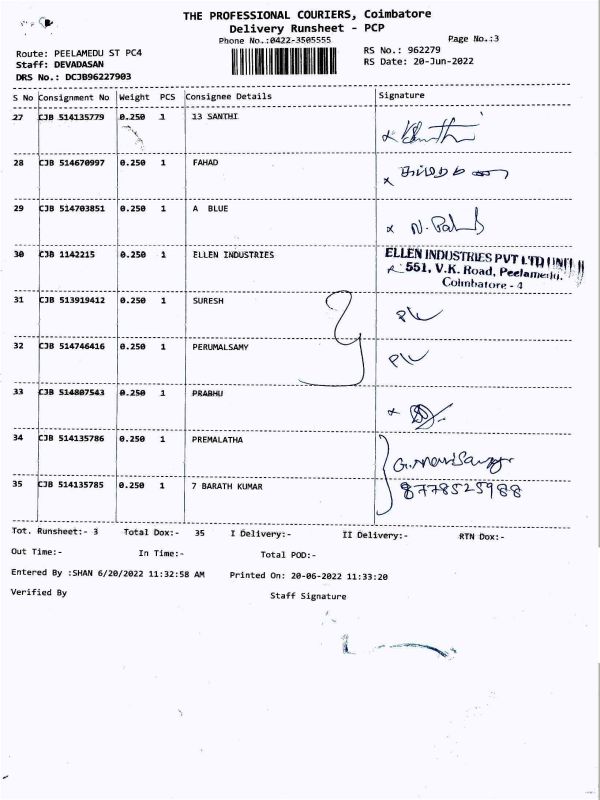 THE PROFESSIONAL COURIERS, Coimbatore
Delivery Runsheet - PCP
Phone No.:0422-3505555
Page No.:3
Route: PEELAMEDU ST PC4
RS No.: 962279
Staff: DEVADASAN
RS Date: 20-Jun-2022
DRS No.: DCJB96227903
S No Consignment No Weight PCS Consignee Details Signature
27 CJB 514135779 0.250 1 13 SANTHI
28 CJB 514670997 0.250 1 FAHAD
29 CJB 514703851 0.250 1 A BLUE
30 CJB 1142215 0.250 1 ELLEN INDUSTRIES
ELLEN INDUSTRIES PVT LTD UNIT
551, V.K. Road, Peelamedu,
Coimbatore - 4
31 CJB 513919412 0.250 1 SURESH
32 CJB 514746416 0.250 1 PERUMALSAMY
33 CJB 514807543 0.250 1 PRABHU
34 CJB 514135786 0.250 1 PREMALATHA
35 CJB 514135785 0.250 1 7 BARATH KUMAR 8778525988
Tot. Runsheet:- 3 Total Dox:- 35 I Delivery:- II Delivery:- RTN Dox:-
Out Time:- In Time:- Total POD:-
Entered By :SHAN 6/20/2022 11:32:58 AM Printed On: 20-06-2022 11:33:20
Verified By Staff Signature